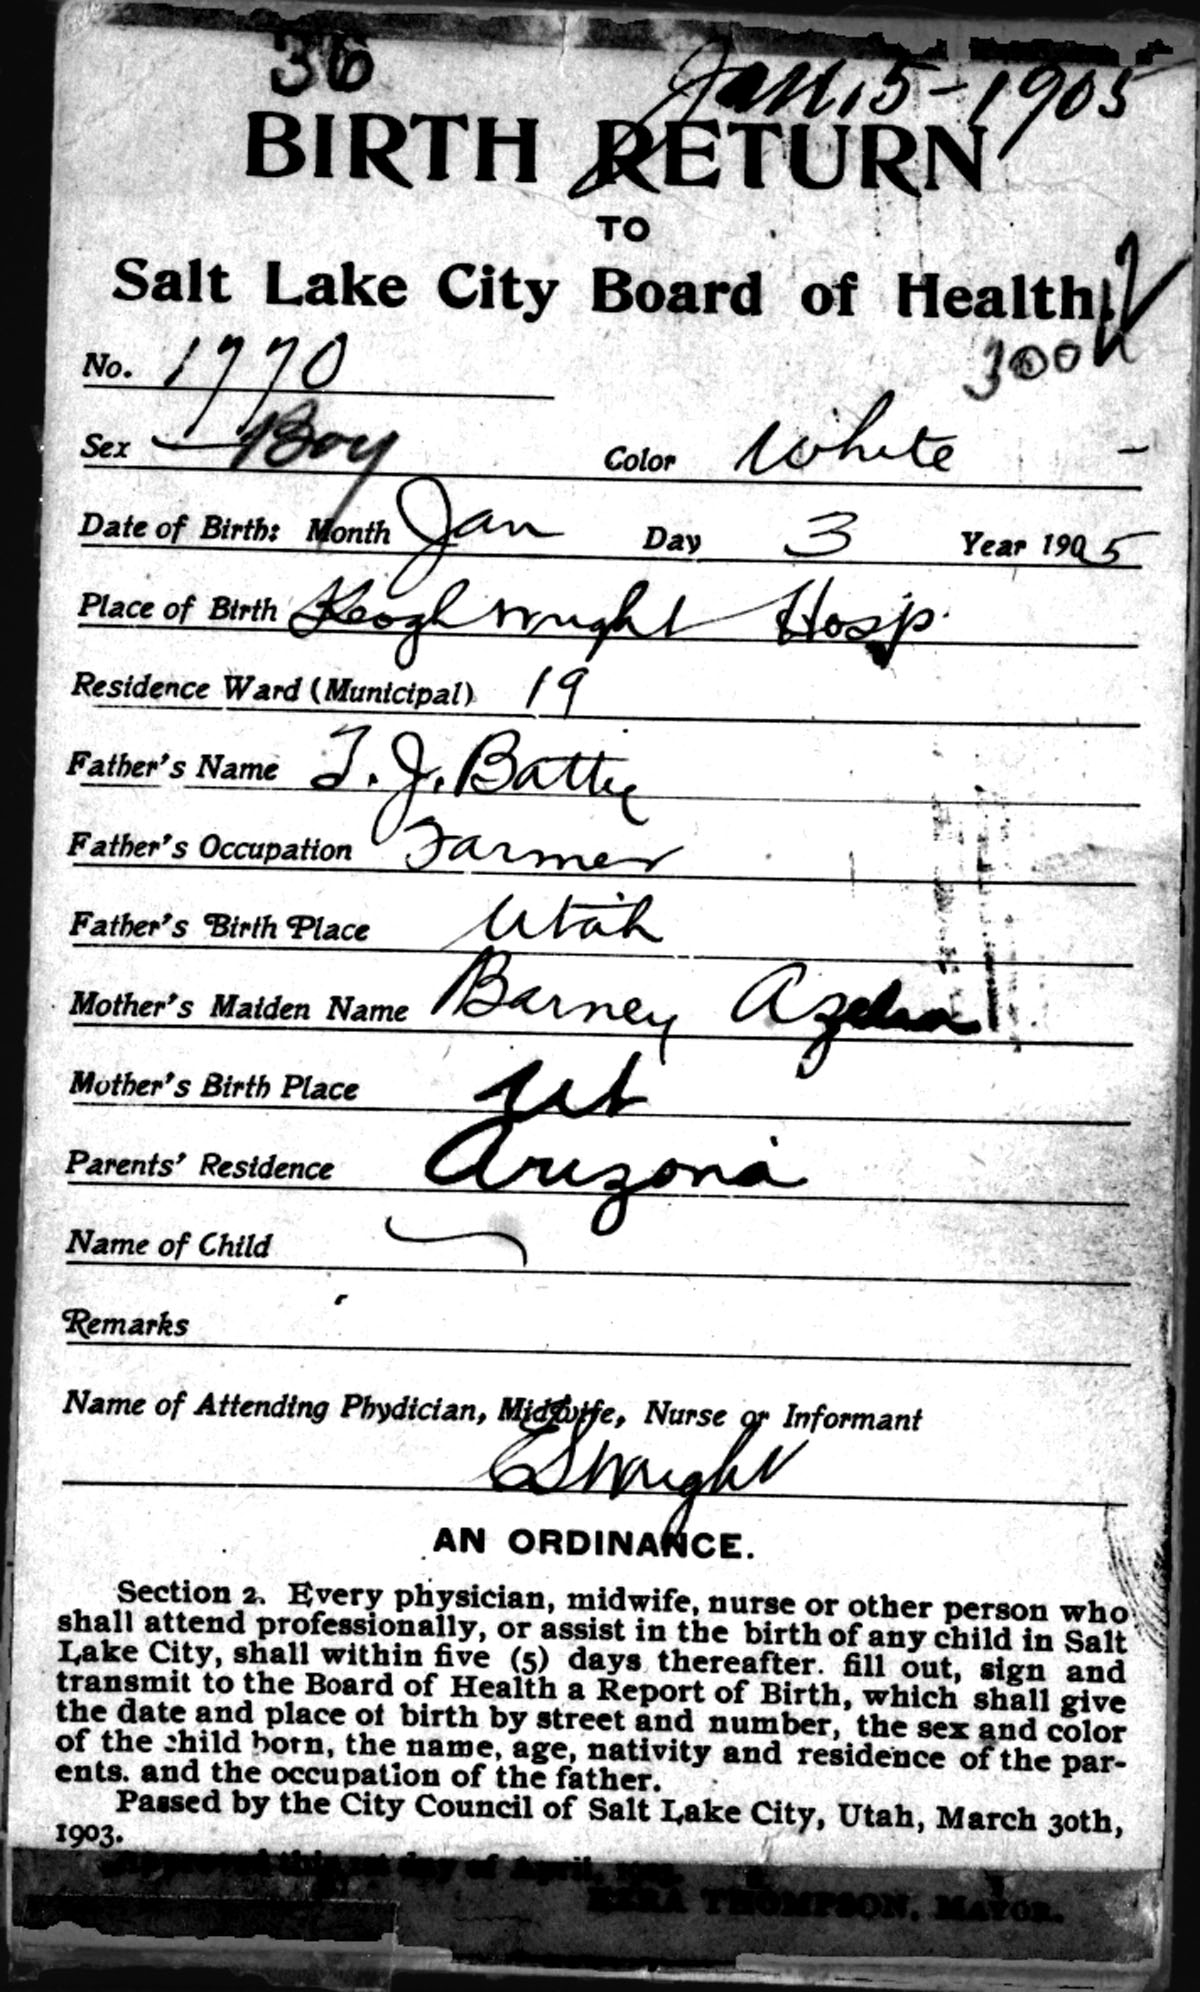 36
Jan. 5-1905
BIRTH RETURN
TO
Salt Lake City Board of Health.
300
No. 1770
Sex Boy Color White -
Date of Birth: Month Jan Day 3 Year 1905
Place of Birth Keogh Wright Hosp.
Residence Ward (Municipal) 19
Father's Name T. J. Batty
Father's Occupation Farmer
Father's Birth Place Utah
Mother's Maiden Name Barney
Mother's Birth Place Ut
Parents' Residence Arizona
Name of Child
Remarks
Name of Attending Phydician, Midwife, Nurse or Informant
E S Wright
AN ORDINANCE.
Section 2. Every physician, midwife, nurse or other person who
shall attend professionally, or assist in the birth of any child in Salt
Lake City, shall within five (5) days thereafter. fill out, sign and
transmit to the Board of Health a Report of Birth, which shall give
the date and place of birth by street and number, the sex and color
of the child born, the name, age, nativity and residence of the par-
ents. and the occupation of the father.
Passed by the City Council of Salt Lake City, Utah, March 30th,
1903.
Approved this 1st day of April, 1903.
EZRA THOMPSON, MAYOR.